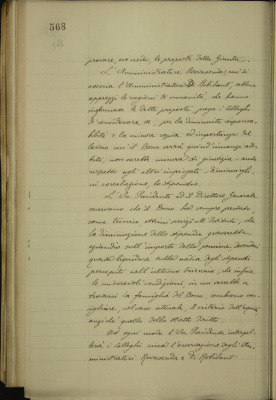 568
provare, ove creda, le proposte della Giunta.
L'Amministratore Bonacossa, cui si
associa l'Amministratore Di Robilant, sebbene
apprezzi le ragioni di umanità, che hanno
informate le dette proposte, prega i Colleghi
di considerare se, per la diminuita responsa-
bilità e la minor copia ed importanza del
lavoro cui il Bono verrà quind'innanzi ad-
bito, non sarebbe misura di giustizia, anche
rispetto agli altri impiegati, diminuirgli,
in correlazione, lo stipendio.
Il Sr. Presidente ed il Direttore Generale
osservano che il Bono ha sempre prestato
come Cassiere ottimi servizi all'Istituto, che
la diminuzione dello stipendio graverebbe
eziandio sull'importo della pensione, dovendo
questa liquidarsi sulla media degli stipendi
percepiti nell'ultimo triennio; che infine
le miserevoli condizioni, in cui verrebbe a
trovarsi la famiglia del Bono, sembrano con-
sigliare, nel caso attuale, il criterio dell'equità
anziché quello dello stretto diritto.
Ad ogni modo il Sr. Presidente interpel-
lerà i Colleghi circa l'osservazione degli Am-
ministratori Bonacossa e Di Robilant